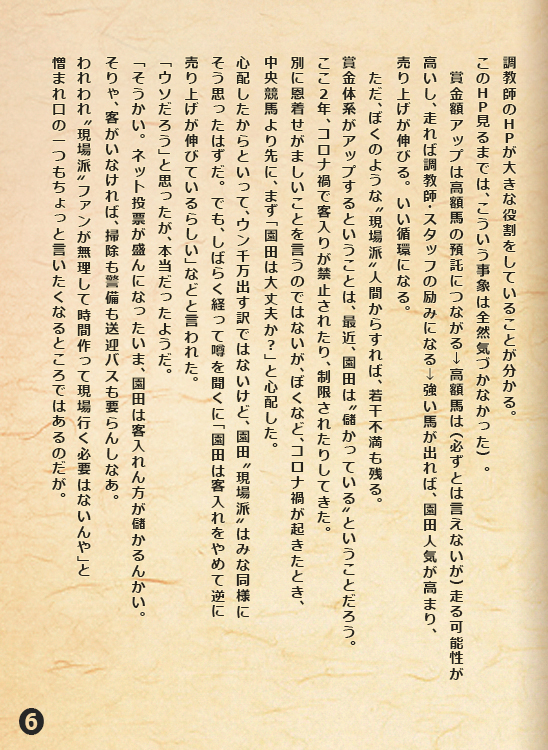 調教師のHPが大きな役割をしていることが分かる。
このHP見るまでは、こういう事象は全然気づかなかった)。
賞金額アップは高額馬の預託につながる→高額馬は(必ずとは言えないが)走る可能性が
高いし、走れば調教師・スタッフの励みになる→強い馬が出れば、園田人気が高まり、
売り上げが伸びる。いい循環になる。
ただ、ぼくのような〝現場派〟人間からすれば、若干不満も残る。
賞金体系がアップするということは、最近、園田は〝儲かっている〟ということだろう。
ここ2年、コロナ禍で客入りが禁止されたり、制限されたりしてきた。
別に恩着せがましいことを言うのではないが、ぼくなど、コロナ禍が起きたとき、
中央競馬より先に、まず「園田は大丈夫か?」と心配した。
心配したからといって、ウン千万出す訳ではないけど、園田〝現場派〟はみな同様に
そう思ったはずだ。でも、しばらく経って噂を聞くに「園田は客入れをやめて逆に
売り上げが伸びているらしい」などと言われた。
「ウソだろう」と思ったが、本当だったようだ。
「そうかい。ネット投票が盛んになったいま、園田は客入れん方が儲かるんかい。
そりゃ、客がいなければ、掃除も警備も送迎バスも要らんしなあ。
われわれ〝現場派〟ファンが無理して時間作って現場行く必要はないんや」と
憎まれ口の一つもちょっと言いたくなるところではあるのだが。
6